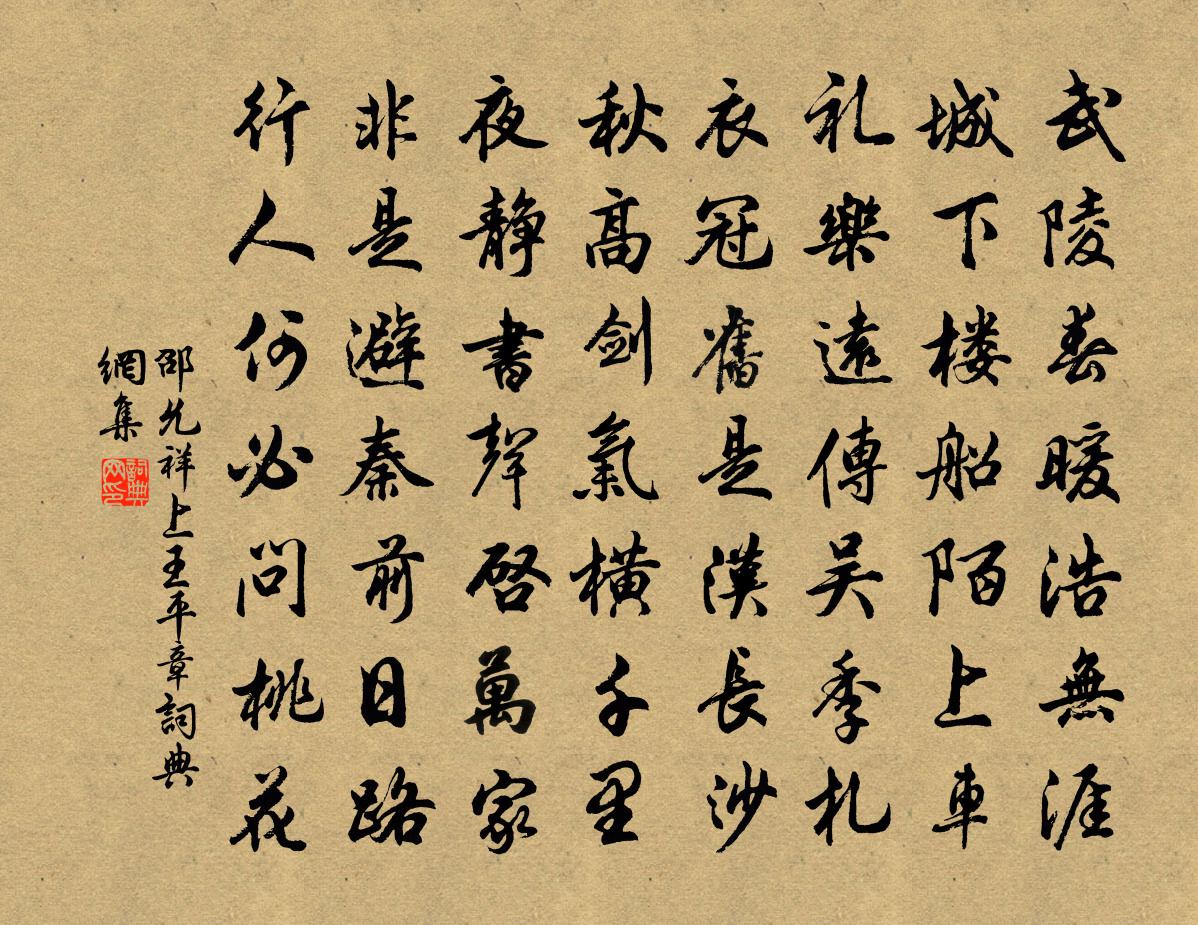 武陵春暖浩無涯
城下楼船陌上車
礼樂遠傳吴季札
衣冠舊是漢長沙
秋高劍氣横千里
夜静書聲啓萬家
非是避秦前日路
行人何必問桃花
邵允祥上王平章詞典
網集
詞典网印